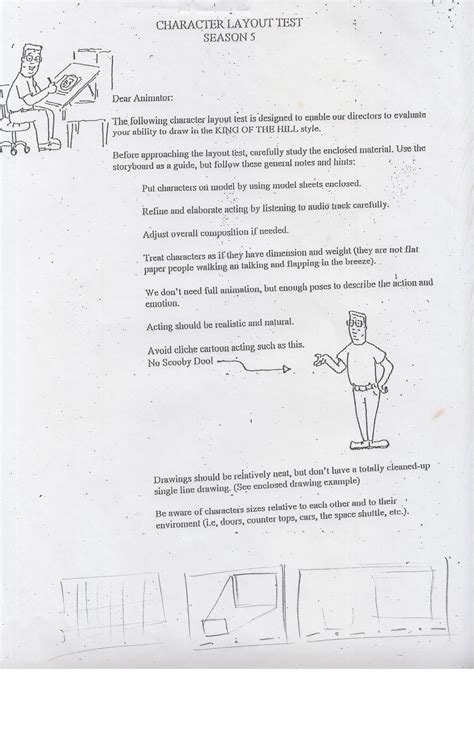 CHARACTER LAYOUT TEST
SEASON 5
Dear Animator:
The following character layout test is designed to enable our directors to evaluate
your ability to draw in the KING OF THE HILL style.
Before approaching the layout test, carefully study the enclosed material. Use the
storyboard as a guide, but follow these general notes and hints:
Put characters on model by using model sheets enclosed.
Refine and elaborate acting by listening to audio track carefully.
Adjust overall composition if needed.
Treat characters as if they have dimension and weight (they are not flat
paper people walking an talking and flapping in the breeze).
We don't need full animation, but enough poses to describe the action and
emotion.
Acting should be realistic and natural.
Avoid cliche cartoon acting such as this.
No Scooby Doo!
Drawings should be relatively neat, but don't have a totally cleaned-up
single line drawing. (See enclosed drawing example)
Be aware of characters sizes relative to each other and to their
enviroment (i.e, doors, counter tops, cars, the space shuttle, etc.).